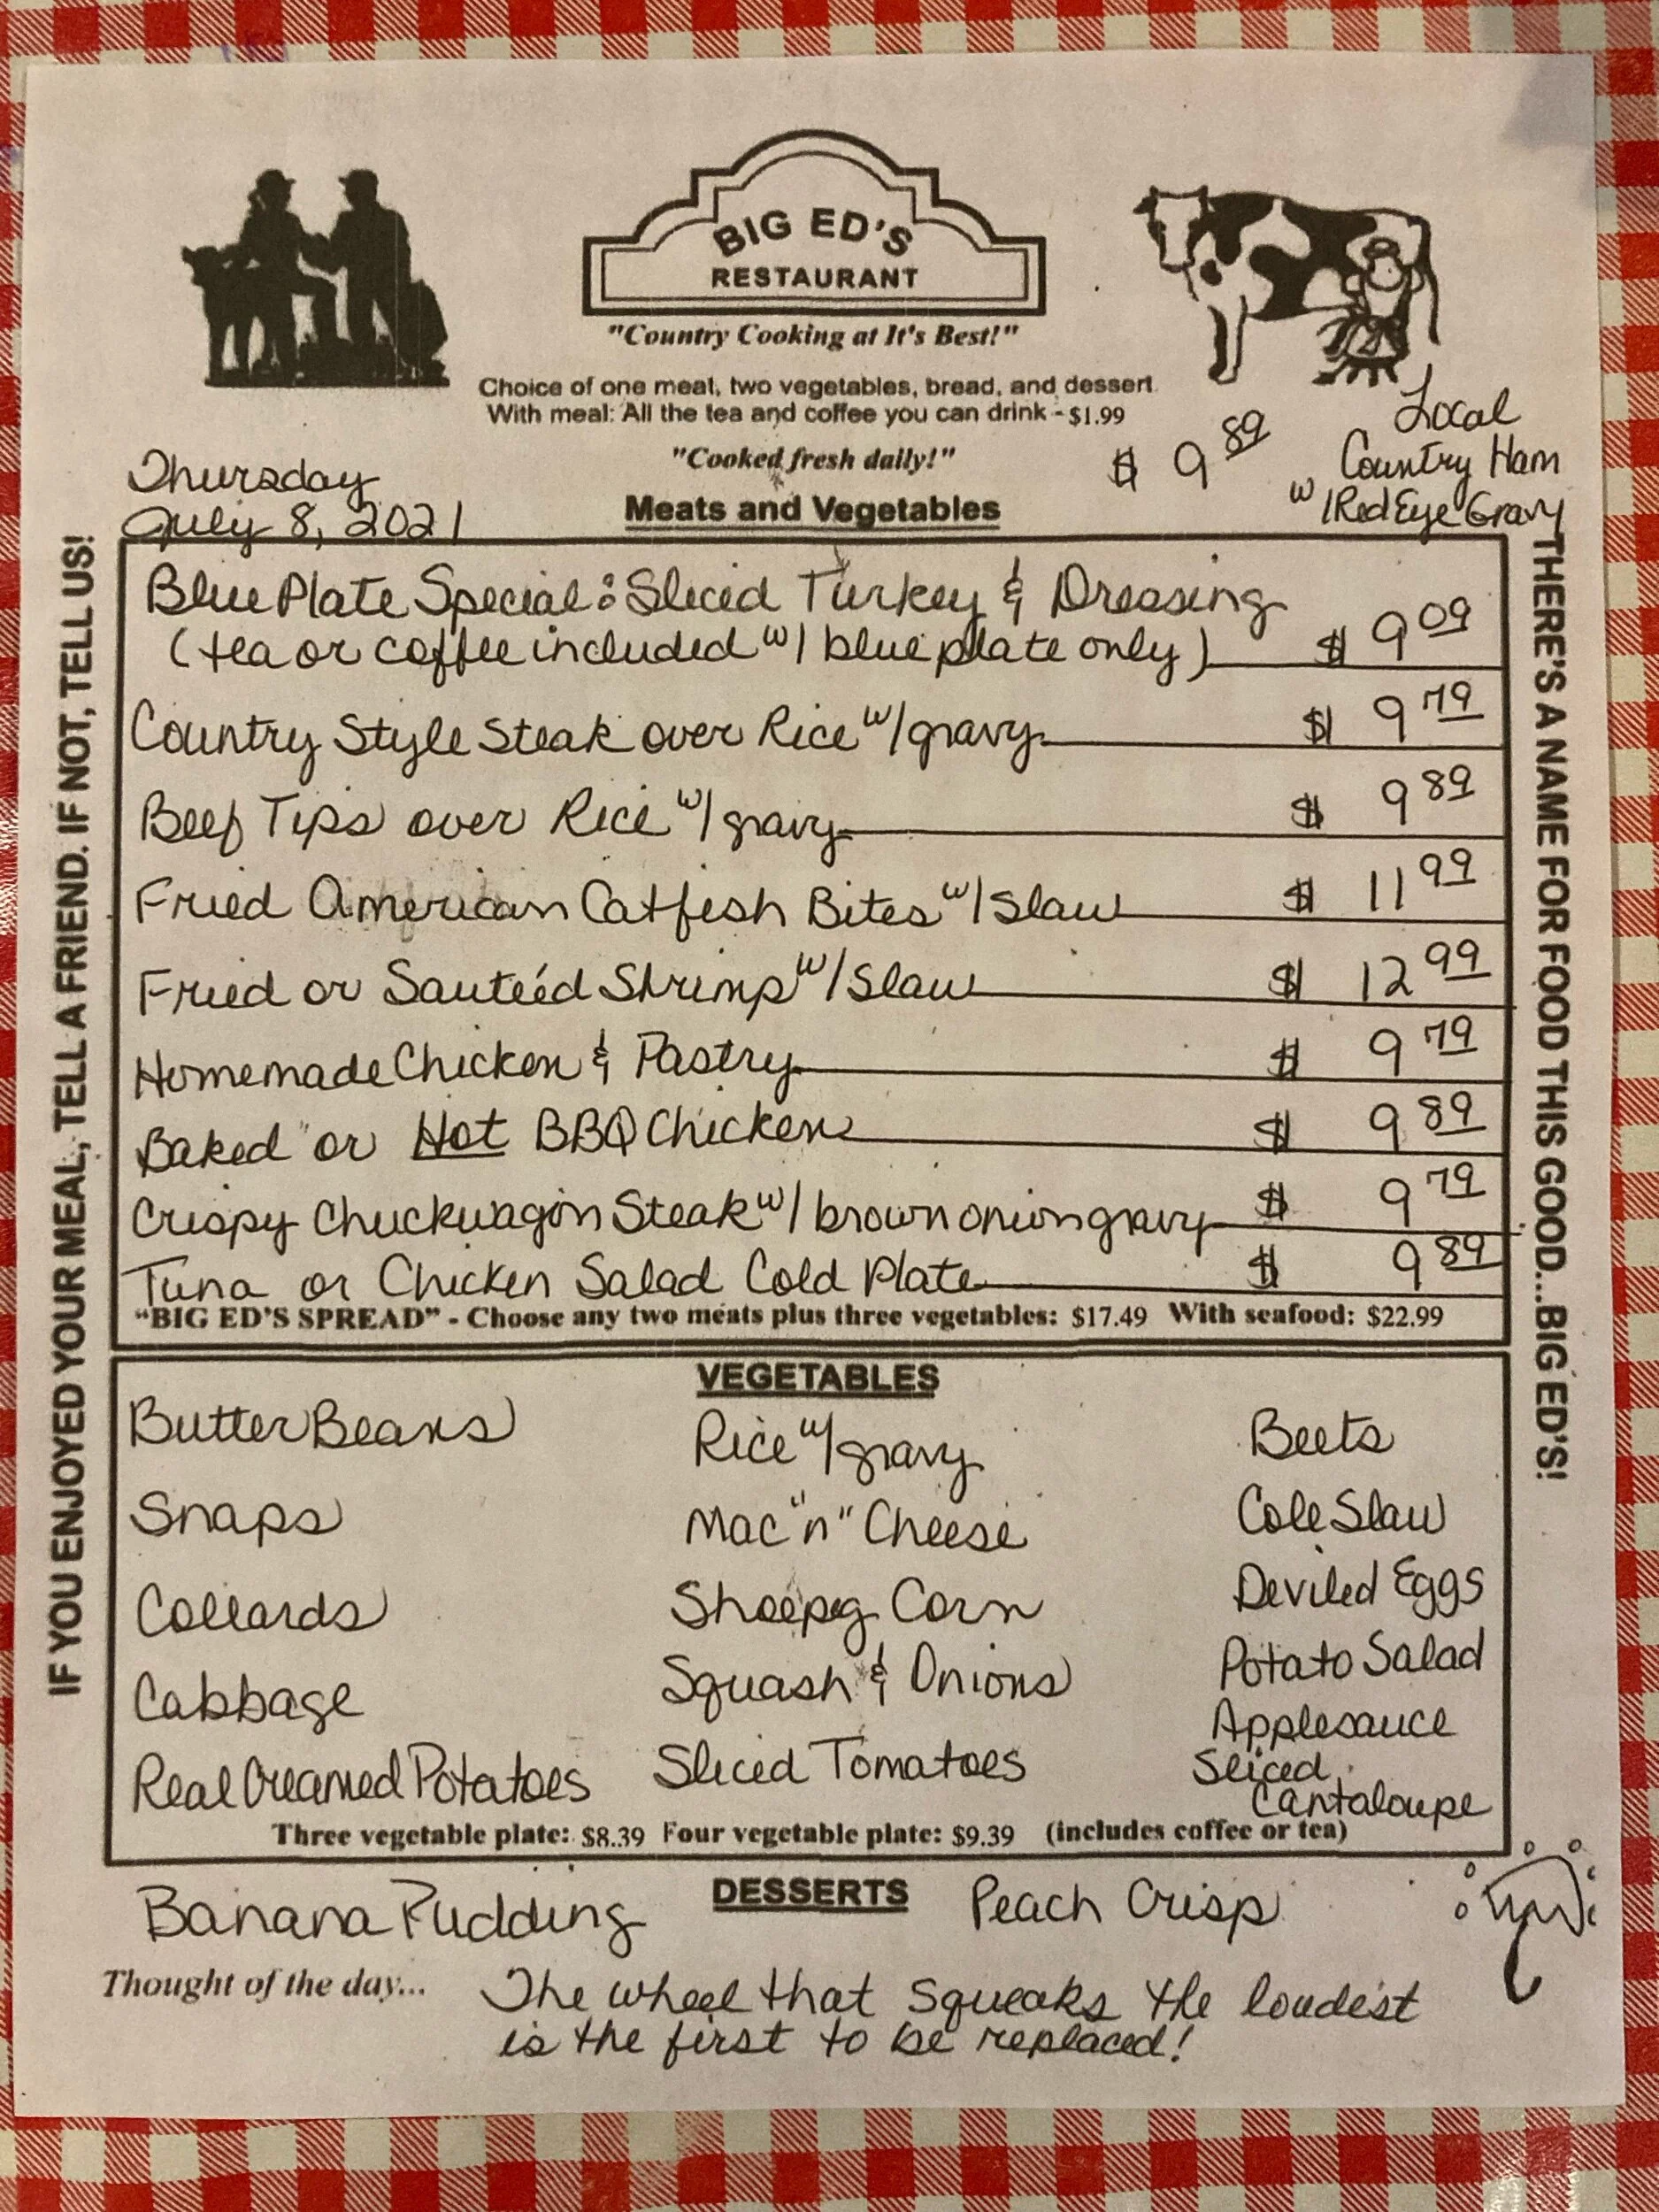 BIG ED'S
RESTAURANT
"Country Cooking at It's Best!"
Choice of one meat, two vegetables, bread, and dessert.
With meal: All the tea and coffee you can drink - $1.99
"Cooked fresh daily!"
Thursday
July 8, 2021
$ 9 89
Local
Country Ham
w/Red Eye Gravy
Meats and Vegetables
Blue Plate Special: Sliced Turkey & Dressing
(tea or coffee included w/ blue plate only) $ 9 09
Country Style Steak over Rice w/gravy $ 9 79
Beef Tips over Rice w/gravy $ 9 89
Fried American Catfish Bites w/Slaw $ 11 99
Fried or Sauteéd Shrimp w/Slaw $ 12 99
Homemade Chicken & Pastry $ 9 79
Baked or Hot BBQ Chicken $ 9 89
Crispy Chuckwagon Steak w/ brown onion gravy $ 9 79
Tuna or Chicken Salad Cold Plate $ 9 89
"BIG ED'S SPREAD" - Choose any two meats plus three vegetables: $17.49 With seafood: $22.99
VEGETABLES
Butter Beans Rice w/gravy Beets
Snaps Mac "n" Cheese Cole Slaw
Collards Shoepeg Corn Deviled Eggs
Cabbage Squash & Onions Potato Salad
Applesauce
Real Creamed Potatoes Sliced Tomatoes Sliced
Cantaloupe
Three vegetable plate: $8.39 Four vegetable plate: $9.39 (includes coffee or tea)
DESSERTS
Banana Pudding Peach Crisp
Thought of the day... The wheel that squeaks the loudest
is the first to be replaced!
IF YOU ENJOYED YOUR MEAL, TELL A FRIEND. IF NOT, TELL US!
THERE'S A NAME FOR FOOD THIS GOOD...BIG ED'S!